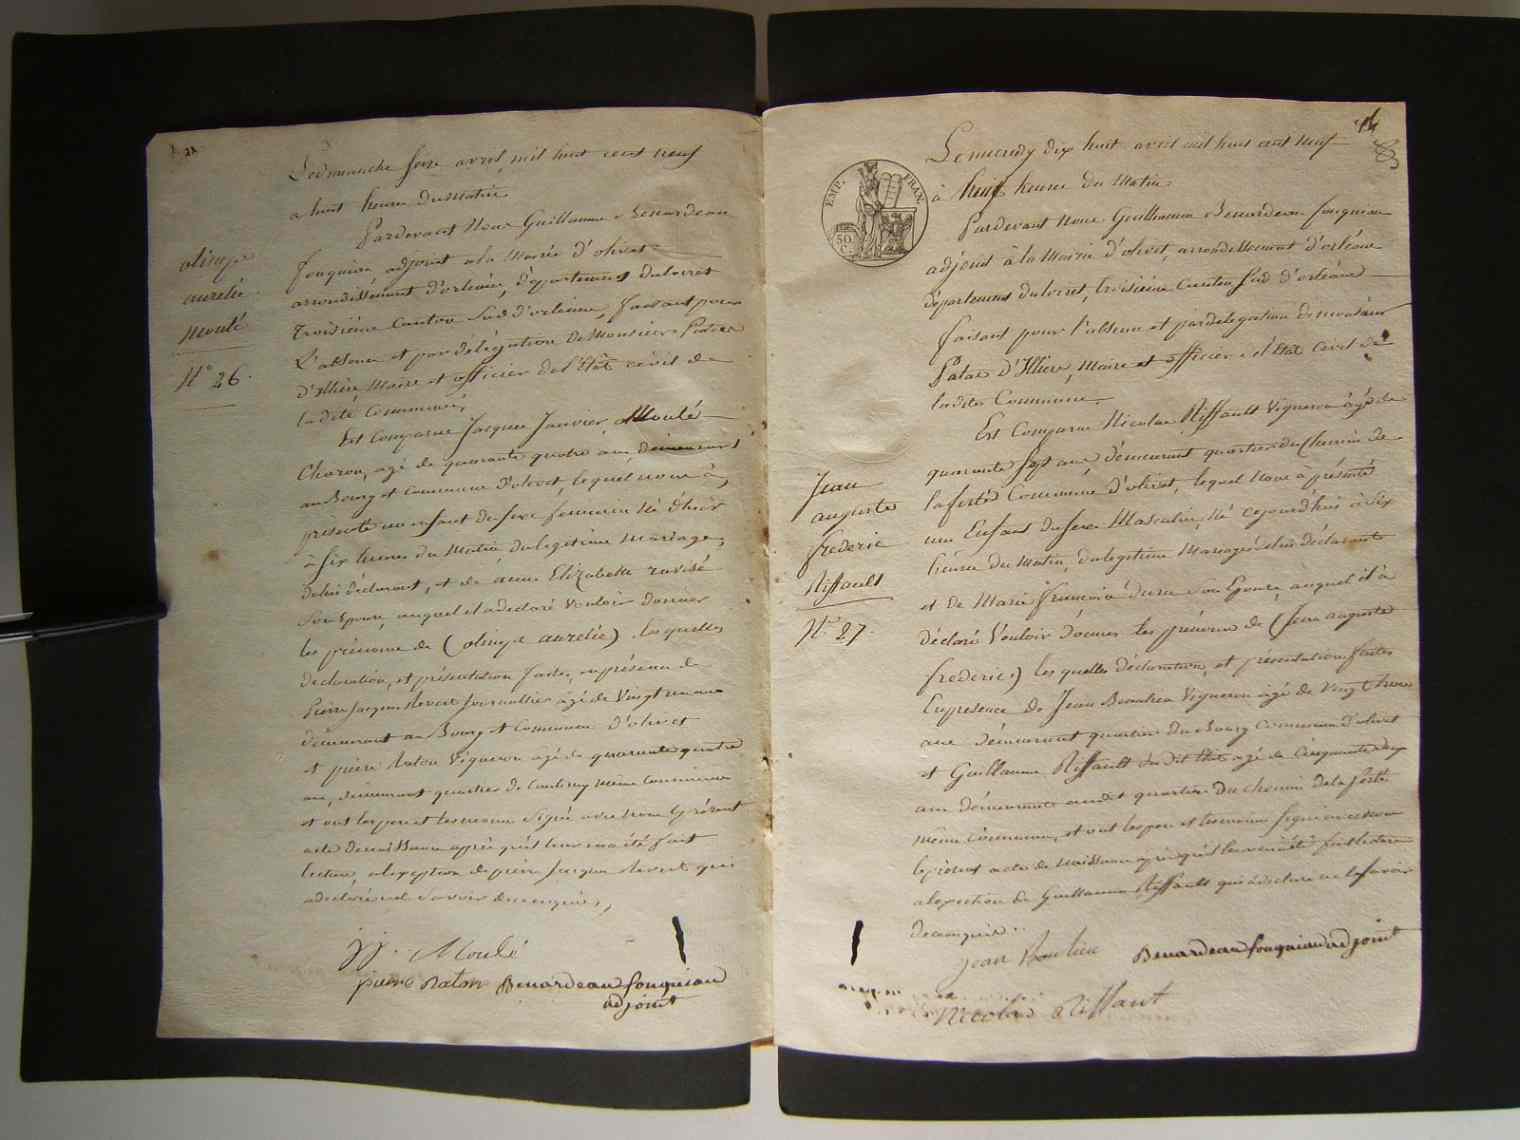 olimpe
aurelie
Moulé
N° 26.
Le dimanche seize avril, mil huit cent neuf
a huit heure du Matin
Pardevant Nous Guillaume Benardeau
fouquiau adjoint a la Mairie d'olivet
arrondissement d'orleans, département du loiret
troisiéme Canton Sud d'orleans, faisant pour
L'absence et par délégation de Monsieur Patas
d'Illiers, Maire et officier de l'état civil de
ladite Commune,
Est Comparue Jacques Janvier Moulé
Charon, agé de quarante quatre ans demeurant
au Bourg et Commune d'olivet, lequel nous à
présenté un enfant de sexe féminin Né d'hier
à six heures du Matin du legitime mariage,
de lui déclarant, et de anne Elizabette ravisé
Son Epouse, auquel il a declaré Vouloir donner
les prénoms de (olimpe aurelie) lesquelles
declaration, et présentation faites en présence de
Pierre Jacques Revert Journallier agé de Vingt neuf ans
démeurant au Bourg et Commune d'olivet
et pierre Raton Vigneron agé de quarante quatre
ans, demeurant quartier de Couleuvry même Commune
et ont les pere et tesmoins Signé avec nous le présent
acte de naissance après qu'il leur en a été fait
lecture, a l'exception de pierre Jacques Revert qui
a declaré ne le savoir de ce enquis,
JJ. Moulé
pierre Raton Benardeau fouquiau
adjoint
EMP. FRAN.
50.
C.
Le mercredy dix huit avril mil huit cent neuf
à huit heures du Matin
Pardevant nous Guillaume Benardeau fouquiau
adjoint à la Mairie d'olivet, arrondissement d'orléans
département du loiret, troisiéme Canton Sud d'orléans
faisant pour l'absence et par delegation de monsieur
Patas d'Illiers, Maire et officier de l'état Civil de
ladite Commune.
Est Comparue Nicolas Riffault Vigneron âgé de
quarante Sept ans démeurant quartier du Chemin de
la ferté Commune d'olivet, lequel Nous à présenté
un Enfant du sexe Masculin, Né cejourd'hui à Six
heures du Matin, du legitime Mariage de lui déclarant
et de Marie françoise Son Epouse, auquel il à
déclaré Vouloir donner les prénoms de (Jean auguste
frederic) les quelles déclaration, et présentation faites
En presence de Jean Beaulieu Vigneron agé de Vingt trois
ans démeurant quartier du Bourg Commune d'olivet
et Guillaume Riffault agé de Cinquante deux
ans démeurant audit quartier du chemin de la ferté
même Commune, et ont les pere et tesmoins signé avec nous
le présent acte de Naissance après qu'il leur en a été fait lecture
a l'exception de Guillaume Riffault qui a declaré ne le savoir
de ce enquis.
Jean
auguste
frederic
Riffault
N° 27.
Jean Benardeau fouquiau adjoint
Nicolas Riffaut